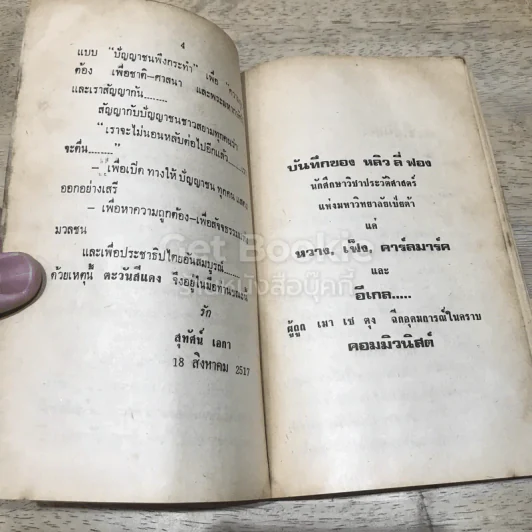 4
แบบ "ปัญญาชนพึงกระทำ" เพื่อ
ต้อง เพื่อชาติ-ศาสนา และพระมหา
และเราสัญญากัน........
สัญญากับปัญญาชนชาวสยามทุกคน
"เราจะไม่นอนหลับต่อไปอีกแล้ว.....
จะตื่น........
- เพื่อเปิดทางให้ปัญญาชน ทุกคน แสดง
ออกอย่างเสรี
- เพื่อหาความถูกต้อง-เพื่อสัจธรรม
มวลชน
และเพื่อประชาธิปไตยอันสมบูรณ์.....
ด้วยเหตุนี้ ตะวันสีแดง จึงอยู่ในมือท่าน
รัก
สุทัศน์ เอกา
18 สิงหาคม 2517
บันทึกของ หลิว ลี่ ฟอง
นักศึกษาวิชาประวัติศาสตร์
แห่งมหาวิทยาลัยเซียต้า
แด่
หวาง, เฟ็ง, คาร์ลมาร์ค
และ
อีเกล.....
ผู้ถูก เมา เซ ตุง ฉีกอุดมการณ์ในคราบ
คอมมิวนิสต์
Get Bookie
ร้านหนังสือบุ๊คกี้